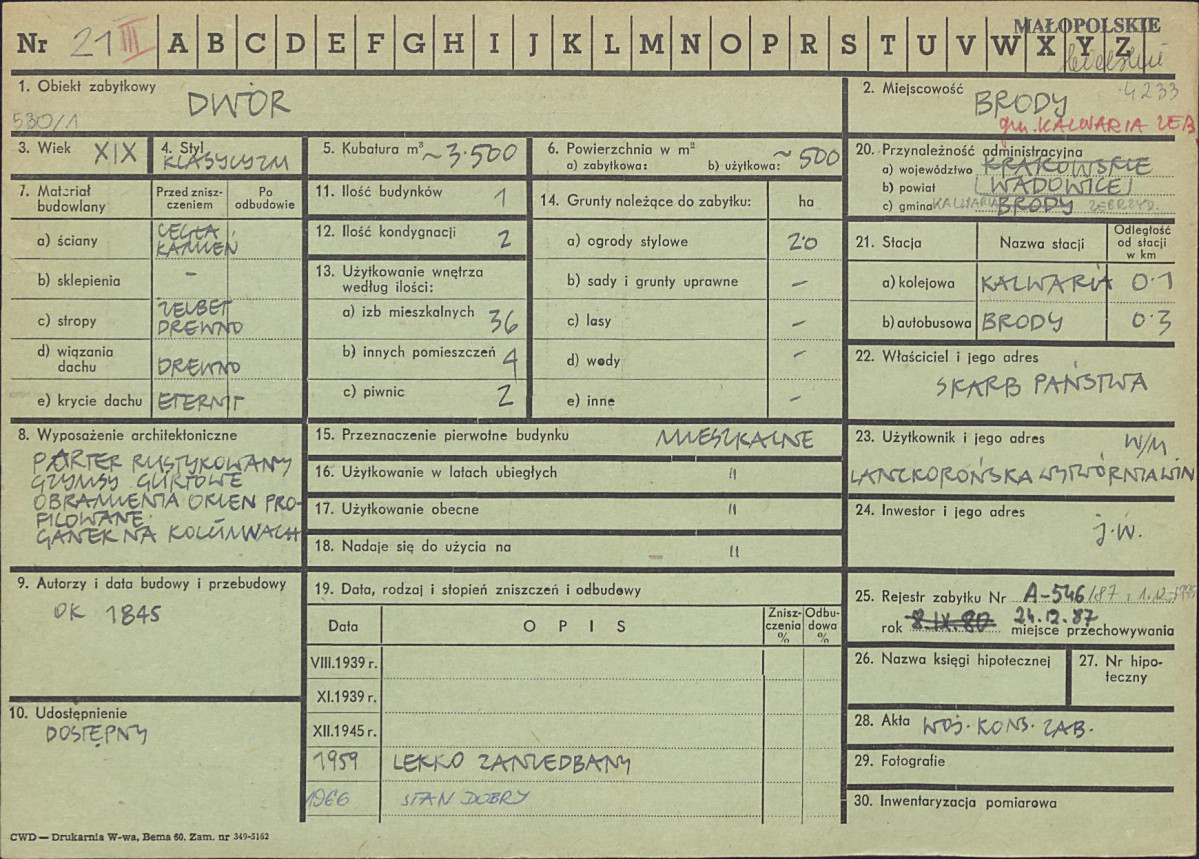 Nr 21 III A B C D E F G H I J K L M N O P R S T U V W X Y Z
MAŁOPOLSKIE
1. Obiekt zabytkowy DWÓR
530/1
2. Miejscowość BRODY 4233
gm. KALWARIA ZEB
3. Wiek XIX
4. Styl KLASYCYZM
5. Kubatura m³ ~3.500
6. Powierzchnia w m²
a) zabytkowa: b) użytkowa: ~500
7. Materiał budowlany
Przed zniszczeniem
Po odbudowie
a) ściany CEGŁA
KAMIEŃ
b) sklepienia -
c) stropy ŻELBET
DREWNO
d) wiązania dachu DREWNO
e) krycie dachu ETERNIT
8. Wyposażenie architektoniczne
PARTER RUSTYKOWANY
GZYMSY GURTOWE
OBRAMIENIA OKIEN PRO-
FILOWANE.
GANEK NA KOLUMNACH
9. Autorzy i data budowy i przebudowy
OK 1845
10. Udostępnienie
DOSTĘPNY
11. Ilość budynków 1
12. Ilość kondygnacji 2
13. Użytkowanie wnętrza
według ilości:
a) izb mieszkalnych 36
b) innych pomieszczeń 4
c) piwnic 2
14. Grunty należące do zabytku: ha
a) ogrody stylowe 2.0
b) sady i grunty uprawne -
c) lasy -
d) wody -
e) inne -
15. Przeznaczenie pierwotne budynku MIESZKALNE
16. Użytkowanie w latach ubiegłych "
17. Użytkowanie obecne "
18. Nadaje się do użycia na "
19. Data, rodzaj i stopień zniszczeń i odbudowy
Data
O P I S
Znisz-
czenia
%
Odbu-
dowa
%
VIII.1939 r.
XI.1939 r.
XII.1945 r.
1959 LEKKO ZANIEDBANY
1966 STAN DOBRY
20. Przynależność administracyjna
a) województwo KRAKOWSKIE
b) powiat (WADOWICE)
c) gmina KALWARIA BRODY ZEBRZYD.
21. Stacja
Nazwa stacji
Odległość
od stacji
w km
a) kolejowa KALWARIA 0.1
b) autobusowa BRODY 0.3
22. Właściciel i jego adres
SKARB PAŃSTWA
23. Użytkownik i jego adres W/M
LANCKOROŃSKA WYTWÓRNIA WIN
24. Inwestor i jego adres
j.w.
25. Rejestr zabytku Nr A-546/87
24.12.87
rok 8.IX.80 miejsce przechowywania
26. Nazwa księgi hipotecznej
27. Nr hipo-
teczny
28. Akta WOJ. KONS. ZAB.
29. Fotografie
30. Inwentaryzacja pomiarowa
CWD — Drukarnia W-wa, Bema 60. Zam. nr 349-5162